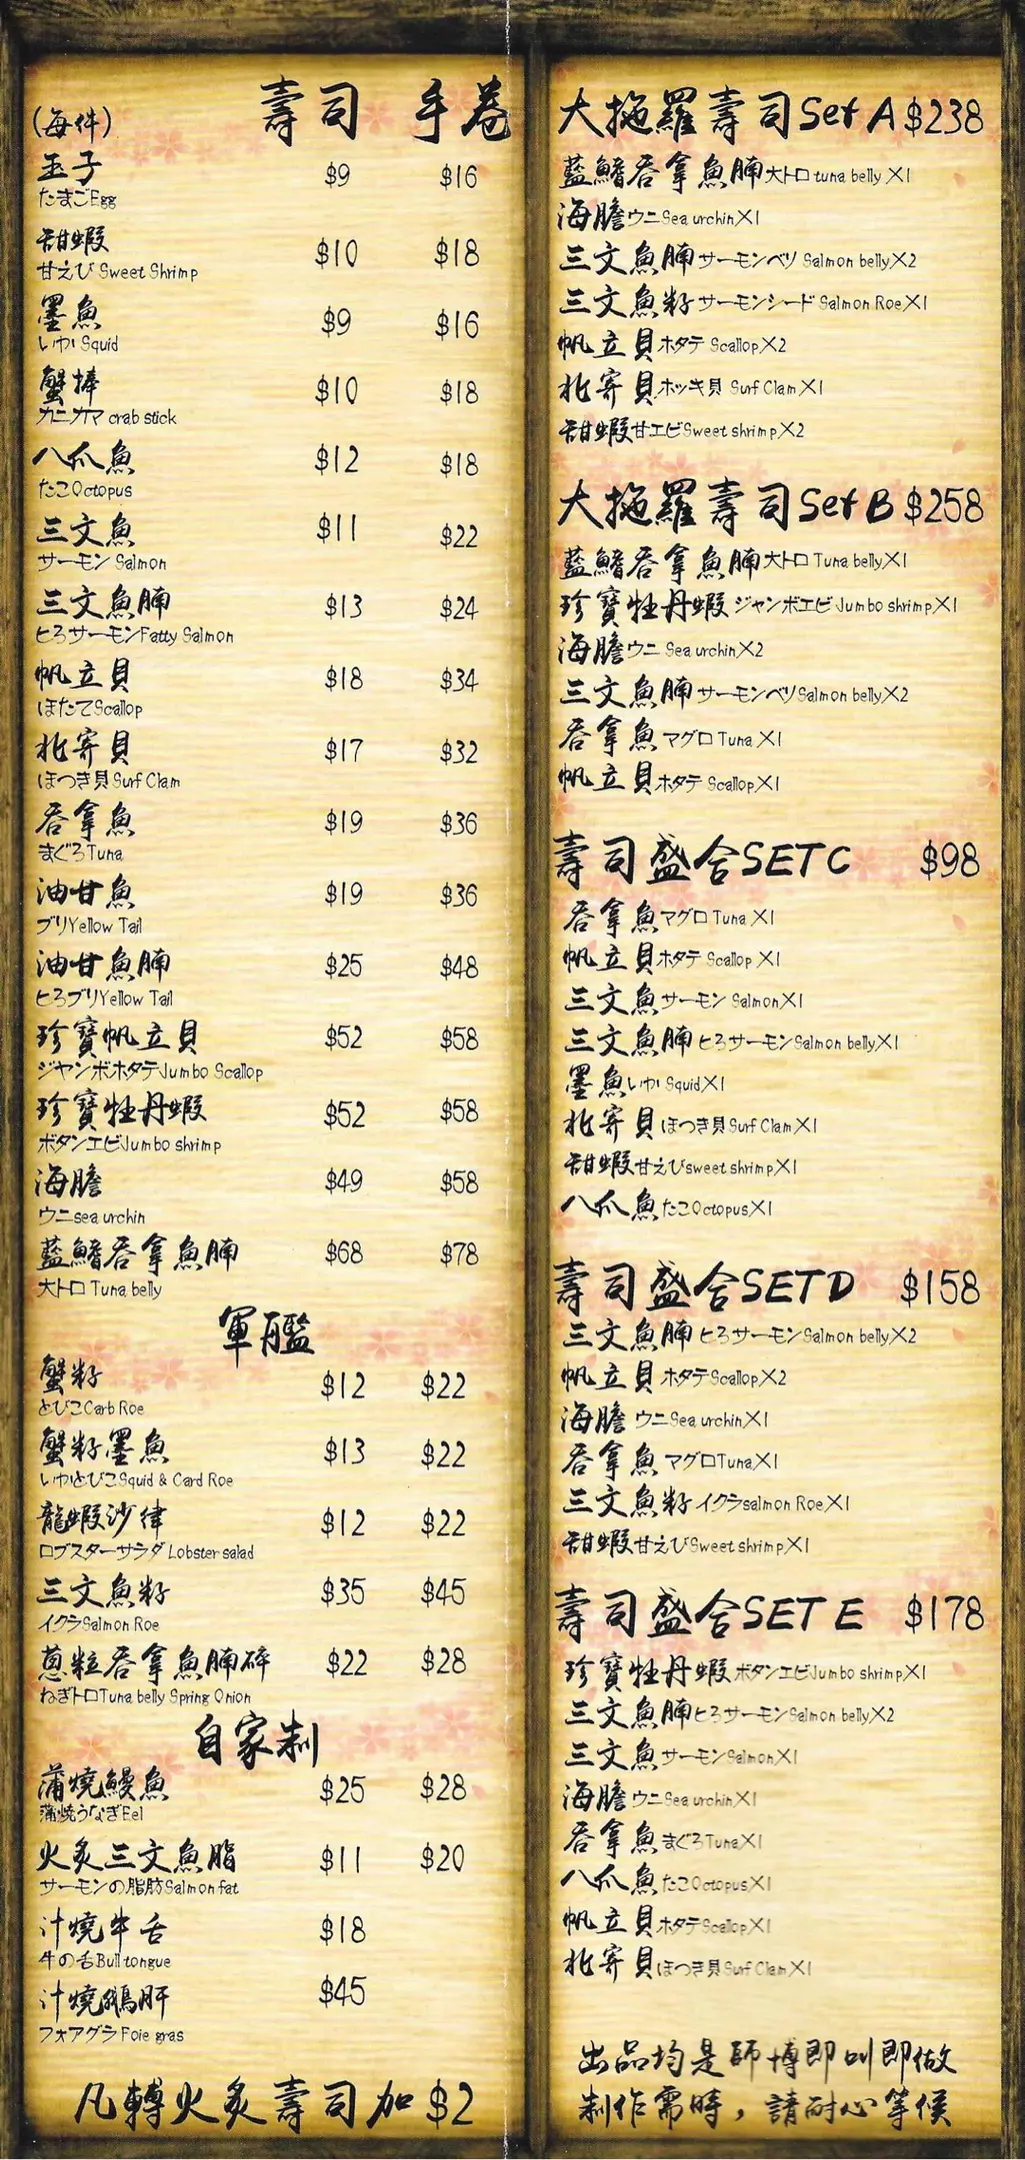 (每件) 壽司 手卷
玉子 $9 $16
たまごEgg
甜蝦 $10 $18
甘えび Sweet Shrimp
墨魚 $9 $16
いか Squid
蟹捧 $10 $18
カニカマ crab stick
八爪魚 $12 $18
たこOctopus
三文魚 $11 $22
サーモン Salmon
三文魚腩 $13 $24
とろサーモンFatty Salmon
帆立貝 $18 $34
ほたてScallop
北寄貝 $17 $32
ほつき貝Surf Clam
吞拿魚 $19 $36
まぐろTuna
油甘魚 $19 $36
ブリYellow Tail
油甘魚腩 $25 $48
とろブリYellow Tail
珍寶帆立貝 $52 $58
ジヤンボホタテJumbo Scallop
珍寶牡丹蝦 $52 $58
ボタンエビJumbo shrimp
海膽 $49 $58
ウニsea urchin
藍鰭吞拿魚腩 $68 $78
大トロ Tuna belly
軍艦
蟹籽 $12 $22
とびこCarb Roe
蟹籽墨魚 $13 $22
いかとびこSquid & Card Roe
龍蝦沙律 $12 $22
ロブスターサラダ Lobster salad
三文魚籽 $35 $45
イクラSalmon Roe
蔥粒吞拿魚腩碎 $22 $28
ねぎトロTuna belly Spring Onion
自家制
蒲燒鰻魚 $25 $28
蒲焼うなぎEel
火炙三文魚脂 $11 $20
サーモンの脂肪Salmon fat
汁燒牛舌 $18
牛の舌Bull tongue
汁燒鵝肝 $45
フォアグラFoie gras
凡轉火炙壽司加$2
大拖羅壽司Set A $238
藍鰭吞拿魚腩大トロ tuna belly X1
海膽ウニSea urchinX1
三文魚腩サーモンベツ Salmon bellyX2
三文魚籽サーモンシード Salmon RoeX1
帆立貝ホタテ ScallopX2
北寄貝ホッキ貝 Surf ClamX1
甜蝦甘エビSweet shrimpX2
大拖羅壽司Set B $258
藍鰭吞拿魚腩大トロ Tuna bellyX1
珍寶牡丹蝦ジャンボエビJumbo shrimpX1
海膽ウニ Sea urchinX2
三文魚腩サーモンベツSalmon bellyX2
吞拿魚マグロTuna X1
帆立貝ホタテ ScallopX1
壽司盛合SETC $98
吞拿魚マグロTuna X1
帆立貝ホタテ Scallop X1
三文魚サーモン SalmonX1
三文魚腩とろサーモンSalmon bellyX1
墨魚いか SquidX1
北寄貝ほつき貝Surf ClamX1
甜蝦甘えびsweet shrimpX1
八爪魚たこOctopusX1
壽司盛合SETD $158
三文魚腩とろサーモンSalmon bellyX2
帆立貝ホタテScallopX2
海膽ウニSea urchinX1
吞拿魚マグロTunaX1
三文魚籽イクラsalmon RoeX1
甜蝦甘えびSweet shrimpX1
壽司盛合SET E $178
珍寶牡丹蝦ボタンエビJumbo shrimpX1
三文魚腩とろサーモンSalmon bellyX2
三文魚サーモンSalmonX1
海膽ウニSea urchinX1
吞拿魚まぐろTunaX1
八爪魚たこOctopusX1
帆立貝ホタテScallopX1
北寄貝ほつき貝Surf ClamX1
出品均是師博即叫即做
制作需時，請耐心等候